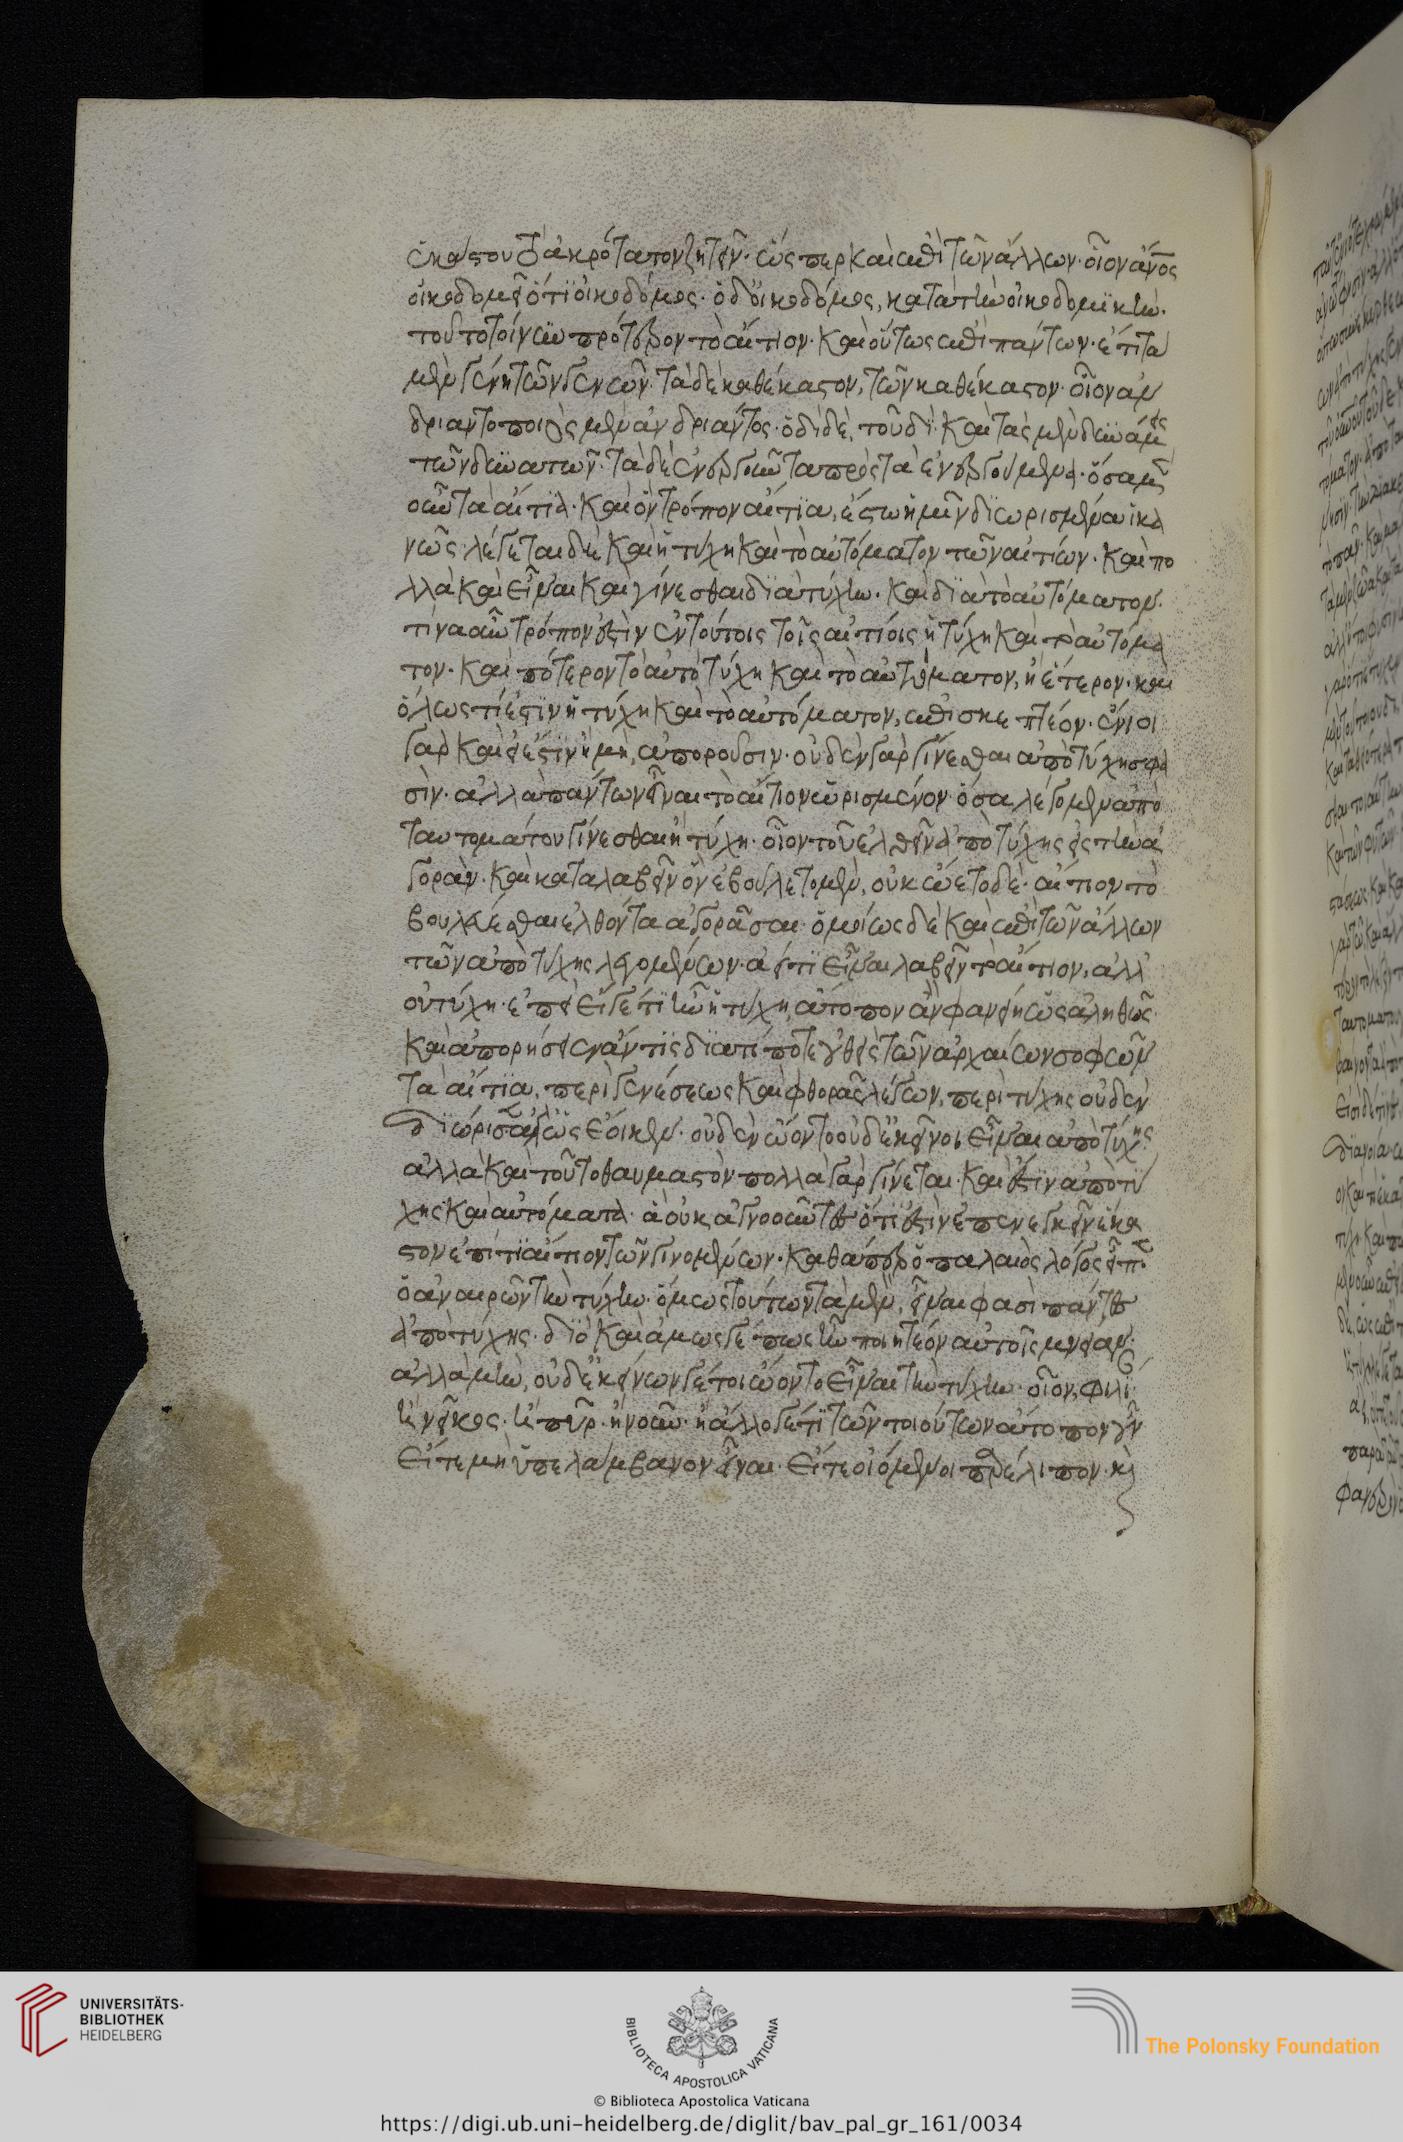 ἑκάστου τὸ ἀκρότατον ζητεῖν· ὥσπερ καὶ ἐπὶ τῶν ἄλλων· οἷον ἄνος
οἰκοδομεῖ ὅτι οἰκοδόμος· ὁ δ οἰκοδόμος, κατὰ τὴν οἰκοδομικήν·
τοῦτο τοίνυν πρότερον τὸ αἴτιον· καὶ οὕτως ἐπὶ πάντων· ἔτι τὰ
μὲν γένη τῶν γενῶν· τὰ δὲ καθέκαστον, τῶν καθέκαστον· οἷον ἀν
δριαντοποιὸς μὲν ἀνδριάντος· ὁδὶ δὲ, τουδί· καὶ τὰς μὲν δυνάμεις
τῶν δυνατῶν· τὰ δὲ ἐνεργοῦντα πρὸς τὰ ἐνεργούμενα· ὅσα μὲν
οὖν τὰ αἴτια· καὶ ὃν τρόπον αἴτια, ἔστω ἡμῖν διωρισμένα ἱκα
νῶς· λέγεται δὲ καὶ ἡ τύχη καὶ τὸ αὐτόματον τῶν αἰτίων· καὶ πο
λλὰ καὶ εἶναι καὶ γίνεσθαι διὰ τύχην· καὶ διὰ τὸ αὐτόματον·
τίνα οὖν τρόπον ἐστὶν ἐν τούτοις τοῖς αἰτίοις ἡ τύχη καὶ τὸ αὐτόμα
τον· καὶ πότερον τὸ αὐτὸ τύχη καὶ τὸ αὐτόματον, ἢ ἕτερον· καὶ
ὅλως τί ἐστιν ἡ τύχη καὶ τὸ αὐτόματον, ἐπισκεπτέον· ἔνιοι
γὰρ καὶ εἰ ἔστιν ἢ μὴ, ἀποροῦσιν· οὐδὲν γὰρ γίνεσθαι ἀπὸ τύχης φα
σὶν· ἀλλὰ πάντων εἶναι τὸ αἴτιον ὡρισμένον ὅσα λέγομεν ἀπὸ
ταυτομάτου γίνεσθαι ἢ τύχη· οἷον τοῦ ἐλθεῖν ἀπὸ τύχης εἰς τὴν ἀ
γορὰν· καὶ καταλαβεῖν ὃν ἐβούλετο μὲν, οὐκ ᾤετο δὲ· αἴτιον τὸ
βούλεσθαι ἐλθόντα ἀγοράσαι· ὁμοίως δὲ καὶ ἐπὶ τῶν ἄλλων
τῶν ἀπὸ τύχης λεγομένων· ἀεί τι εἶναι λαβεῖν τὸ αἴτιον, ἀλλ
οὐ τύχη· ἐπεὶ εἴγε τι ἦν ἡ τύχη, ἄτοπον ἂν φανείη ὡς ἀληθῶς·
καὶ ἀπορήσειεν ἄν τις διατί ποτε οὐθεὶς τῶν ἀρχαίων σοφῶν
τὰ αἴτια, περὶ γενέσεως καὶ φθορᾶς λέγων, περὶ τύχης οὐδὲν
διώρισεν ἀλλ ὡς ἔοικεν· οὐδὲν ᾤοντο οὐδ ἐκεῖνοι εἶναι ἀπὸ τύχης
ἀλλὰ καὶ τοῦτο θαυμαστὸν πολλὰ γὰρ γίνεται· καὶ ἔστιν ἀπὸ τύ
χης καὶ αὐτόματα· ἃ οὐκ ἀγνοοῦντες ὅτι ἐστὶν ἐπενεγκεῖν ἕκα
στον ἐπί τι αἴτιον τῶν γινομένων· καθάπερ ὁ παλαιὸς λόγος εἶπεν
ὁ ἀναιρῶν τὴν τύχην· ὅμως τούτων τὰ μὲν, εἶναι φασὶ πάντες
ἀπὸ τύχης· διὸ καὶ ἁμῶς γέ πως ἦν ποιητέον αὐτοῖς μνείαν·
ἀλλὰ μὴν, οὐδ ἐκείνων γέ τοι ᾤοντο εἶναι τὴν τύχην· οἷον, φιλί
ἢ νεῖκος· ἢ πῦρ· ἢ νοῦν· ἢ ἄλλο γέ τι τῶν τοιούτων ἄτοπον οὖν
εἴτε μὴ ὑπελάμβανον εἶναι· εἴτε οἰόμενοι παρέλιπον· καὶ
UNIVERSITÄTS-
BIBLIOTHEK
HEIDELBERG
BIBLIOTECA APOSTOLICA VATICANA
The Polonsky Foundation
© Biblioteca Apostolica Vaticana
https://digi.ub.uni-heidelberg.de/diglit/bav_pal_gr_161/0034